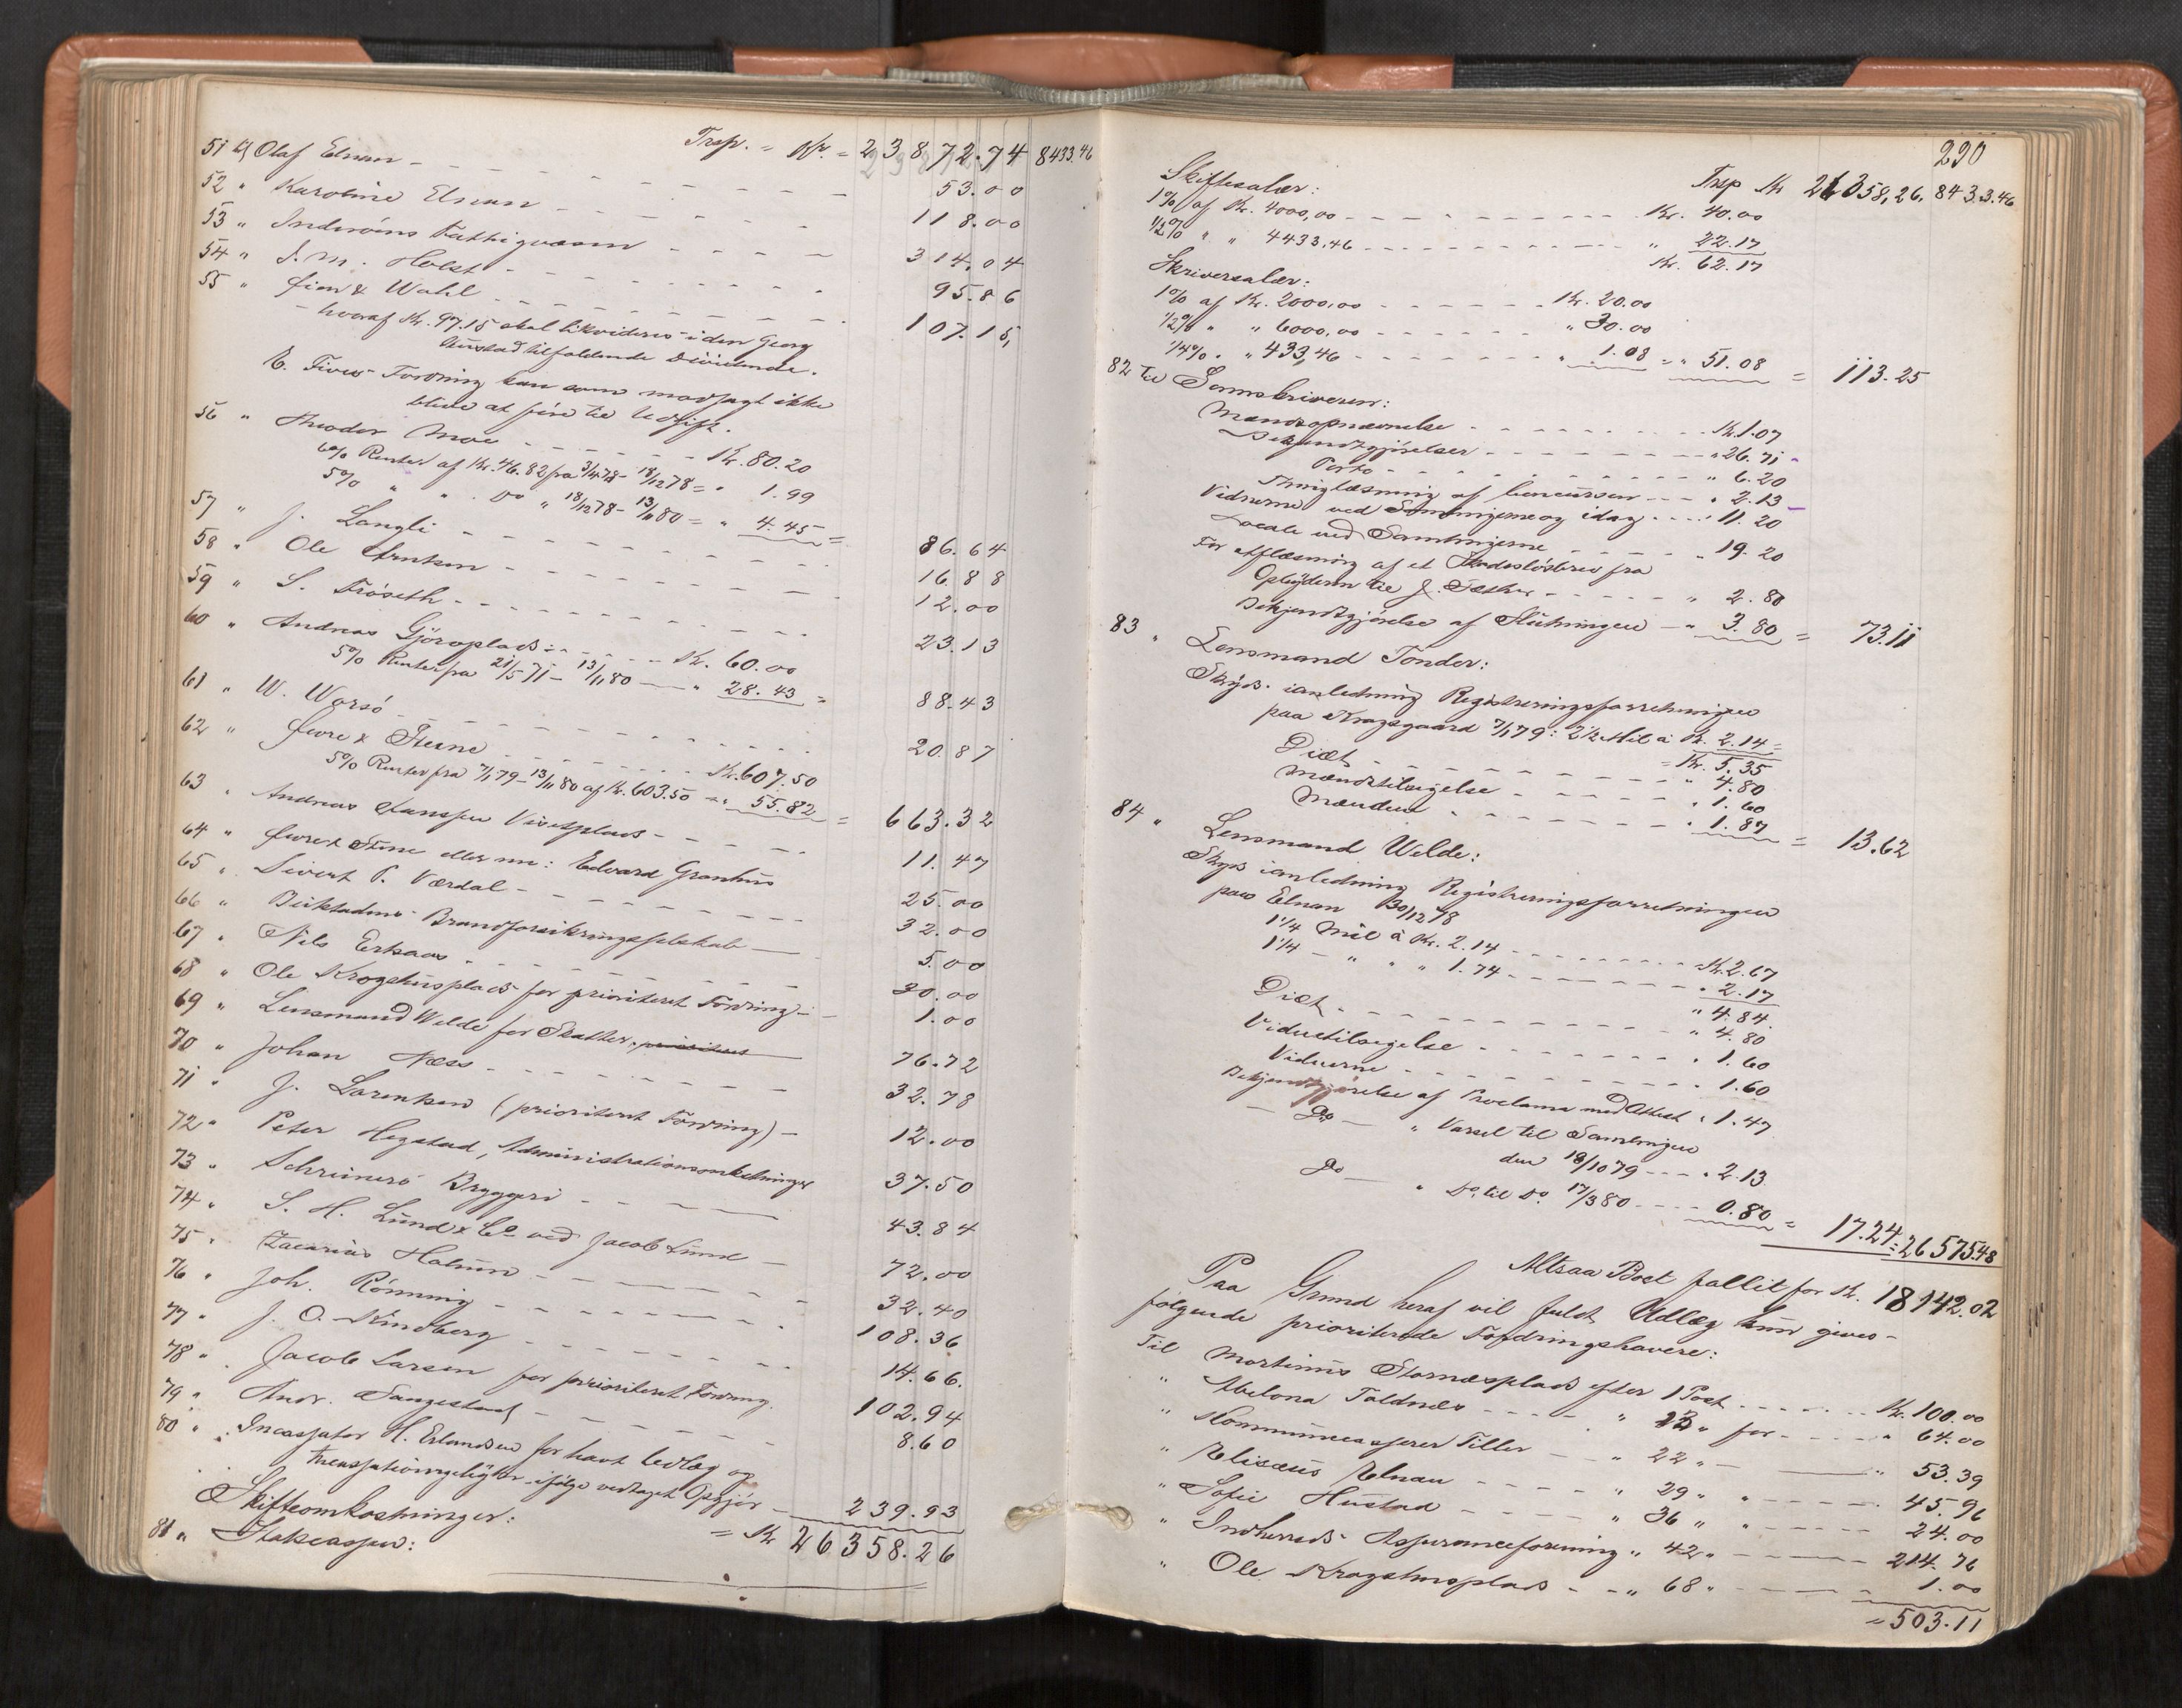 Trsp. = Kr. = 23872.74 8433.46
51 til Olaf Elnan - - - 53.00
52 " Karoline Elnan - - - 118.00
53 " Inderöens Fattigvæsen - - - 314.04
54 " J. M. Holst - - - 95.86
55 " Finn & Wahl - - - 107.15,
- hvoraf Kr. 97.15 skal likvideres i den Georg
Hustad tilfaldende Dividende.
E. Fivers Fordring kan som modsagt ikke
blive at före til Udgift.
56 " Theodor Moe - - - Kr. 80.20
6% Renter af Kr. 76.82 fra 3/4 78 - 18/12 78 = " 1.99
5% " " Do " 18/12 78 - 13/11 80 = " 4.45 = 86.64
57 " J. Langli - - - 16.88
58 " Ole Arntsen - - - 12.00
59 " S. Fröseth - - - 23.13
60 " Andreas Gjöroplads: - - - Kr. 60.00
5% Renter fra 21/5 71 - 13/11 80 - " 28.43 = 88.43
61 " W. Worsö - - - 20.87
62 " Hure & Steene - - - Kr. 607.50
5% Renter fra 7/1 79 - 13/11 80 af Kr. 603.50 - " 55.82 = 663.32
63 " Andreas Hanssen Vivetsplads - - - 11.47
64 " Hure & Stene eller nu: Edvard Granhus 25.00
65 " Sivert P. Værdal - - - 32.00
66 " Bukstadens Brandforsikringsselskab - 5.00
67 " Nils Erksaas - - - 30.00
68 " Ole Krogshusplads for prioriteret Fordring - 1.00
69 " Lensmand Welde for Skatter, prioriteret 76.72
70 " Johan Næss - - - 32.78
71 " J. Lorentsen (prioriteret Fordring) - 12.00
72 " Peter Hegstad, Administrationsomkostninger 37.50
73 " Schreiners Bryggeri - - - 43.84
74 " S. H. Lund & Co ved Jacob Lund - 72.00
75 " Zacarias Halsun - - - 32.40
76 " Joh. Rönning - - - 108.36
77 " J. O. Kindberg - - - 14.66.
78 " Jacob Larsen for prioriteret Fordring. 102.94
79 " Andr. Saugestad - - - 8.60
80 " Incassator H. Erlandsen for havt Udlæg og
Incassationsgebyhr ifölge vedtaget Opgjör - 239.93
= Kr 26358.26
Skifteomkostninger:
81 " Statscassen:
290
Trsp Kr 26358,26. 8433.46
Skiftesalær:
1% af Kr. 4000,00 - - - Kr. 40.00
1/2% " " 4433.46 - - - " 22.17
Kr. 62.17
Skriversalær:
1% af Kr. 2000,00 - - - Kr. 20.00
1/2% " " 6000,00 - - - " 30.00
1/4% " " 433,46 - - - " 1.08 = " 51.08 = 113.25
82 til Sorenskriveren:
Mandsopnævnelse - - - Kr. 1.07
Bekjendtgjörelser - - - " 26.71
Porto - - - " 6.20
Thinglæsning af Concursen - - - " 2.13
Vidnerne ved Samlingerne og idag - - - " 11.20
Locale ved Samlingerne - - - " 19.20
For aflæsning af et Skadeslösbrev fra
Opbyderen til J. Sæther - - - " 2.80
Bekjendtgjörelse af Slutningen - " 3.80 = 73.11
83 " Lensmand Tönder:
Skyds i anledning Registreringsforretningen
paa Krogsgaard 7/1 79: 2 1/2 Mil à Kr. 2.14 =
= Kr. 5.35
Diæt - - - " 4.80
Mændstilsigelse - - - " 1.60
Mændene - - - " 1.87 = 13.62
84 " Lensmand Welde:
Skyds i anledning Registreringsforretningen
paa Elnan 30/12 78
1 1/4 Mil à Kr. 2.14 - - - Kr. 2.67
1 1/4 - " " " 1.74 - - - " 2.17
" 4.84
Diæt - - - " 4.80
Vidnetilsigelse - - - " 1.60
Vidnerne - - - " 1.60
Bekjendtgjörelse af Proclama med Attest " 1.47
- Do - " Varsel til Samlingen
den 18/10 79 - - - " 2.13
Do - " Do til Do 17/3 80 - - - 0.80 = 17.24 = 26575.48
Altsaa Boet fallit for Kr. 18142.02
Paa Grund heraf vil fuldt Udlæg kun gives -
følgende prioriterede Fordringshavere:
Til Martinus Stornæsplads efter 1 Post - - - Kr. 100.00
" Abelona Toldnæs - - - " 13 " for - - - " 64.00
" Kommunecasserer Tiller - " 22 " - - " 53.39
" Elisæus Elnan - - - " 29 " " - - - 45.96
" Sofie Hustad - - - " 36 " " - - - 24.00
" Indherreds Assuranceforening " 42 " - - - 214.76
" Ole Krogshusplads - - " 68 " - - - 1.00
= 503.11